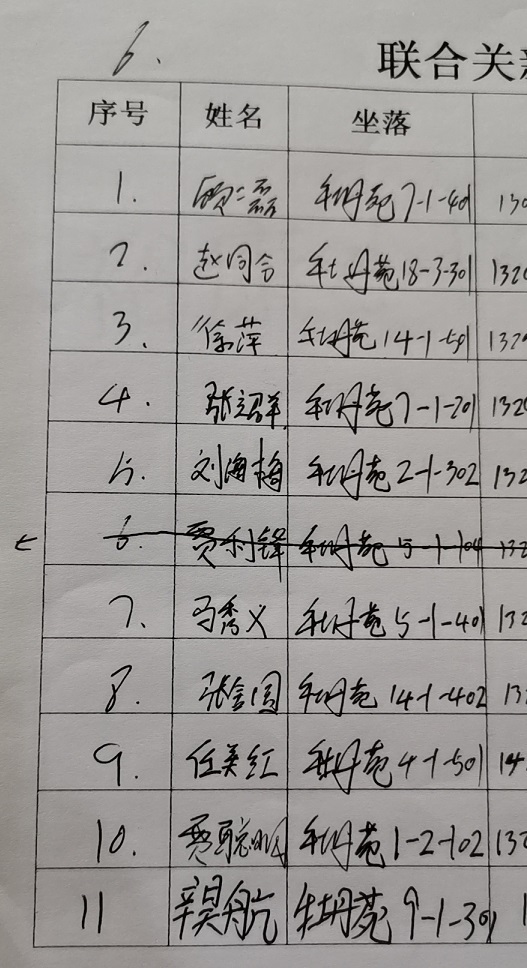 6.
联合关
序号 姓名 坐落
1. 牡丹苑7-1-401 130
2. 赵同合 牡丹苑18-3-301 132
3. 徐萍 牡丹苑14-1-501 132
4. 张绍群 牡丹苑7-1-201 132
5. 刘海梅 牡丹苑2-1-302 132
6. 贾利锋 牡丹苑5-1-104 132
7. 马秀义 牡丹苑5-1-401 132
8. 张会国 牡丹苑14-1-402 13
9. 任美红 牡丹苑4-1-501 14
10. 贾聪明 牡丹苑1-2-102 132
11 航 牡丹苑9-1-301 1